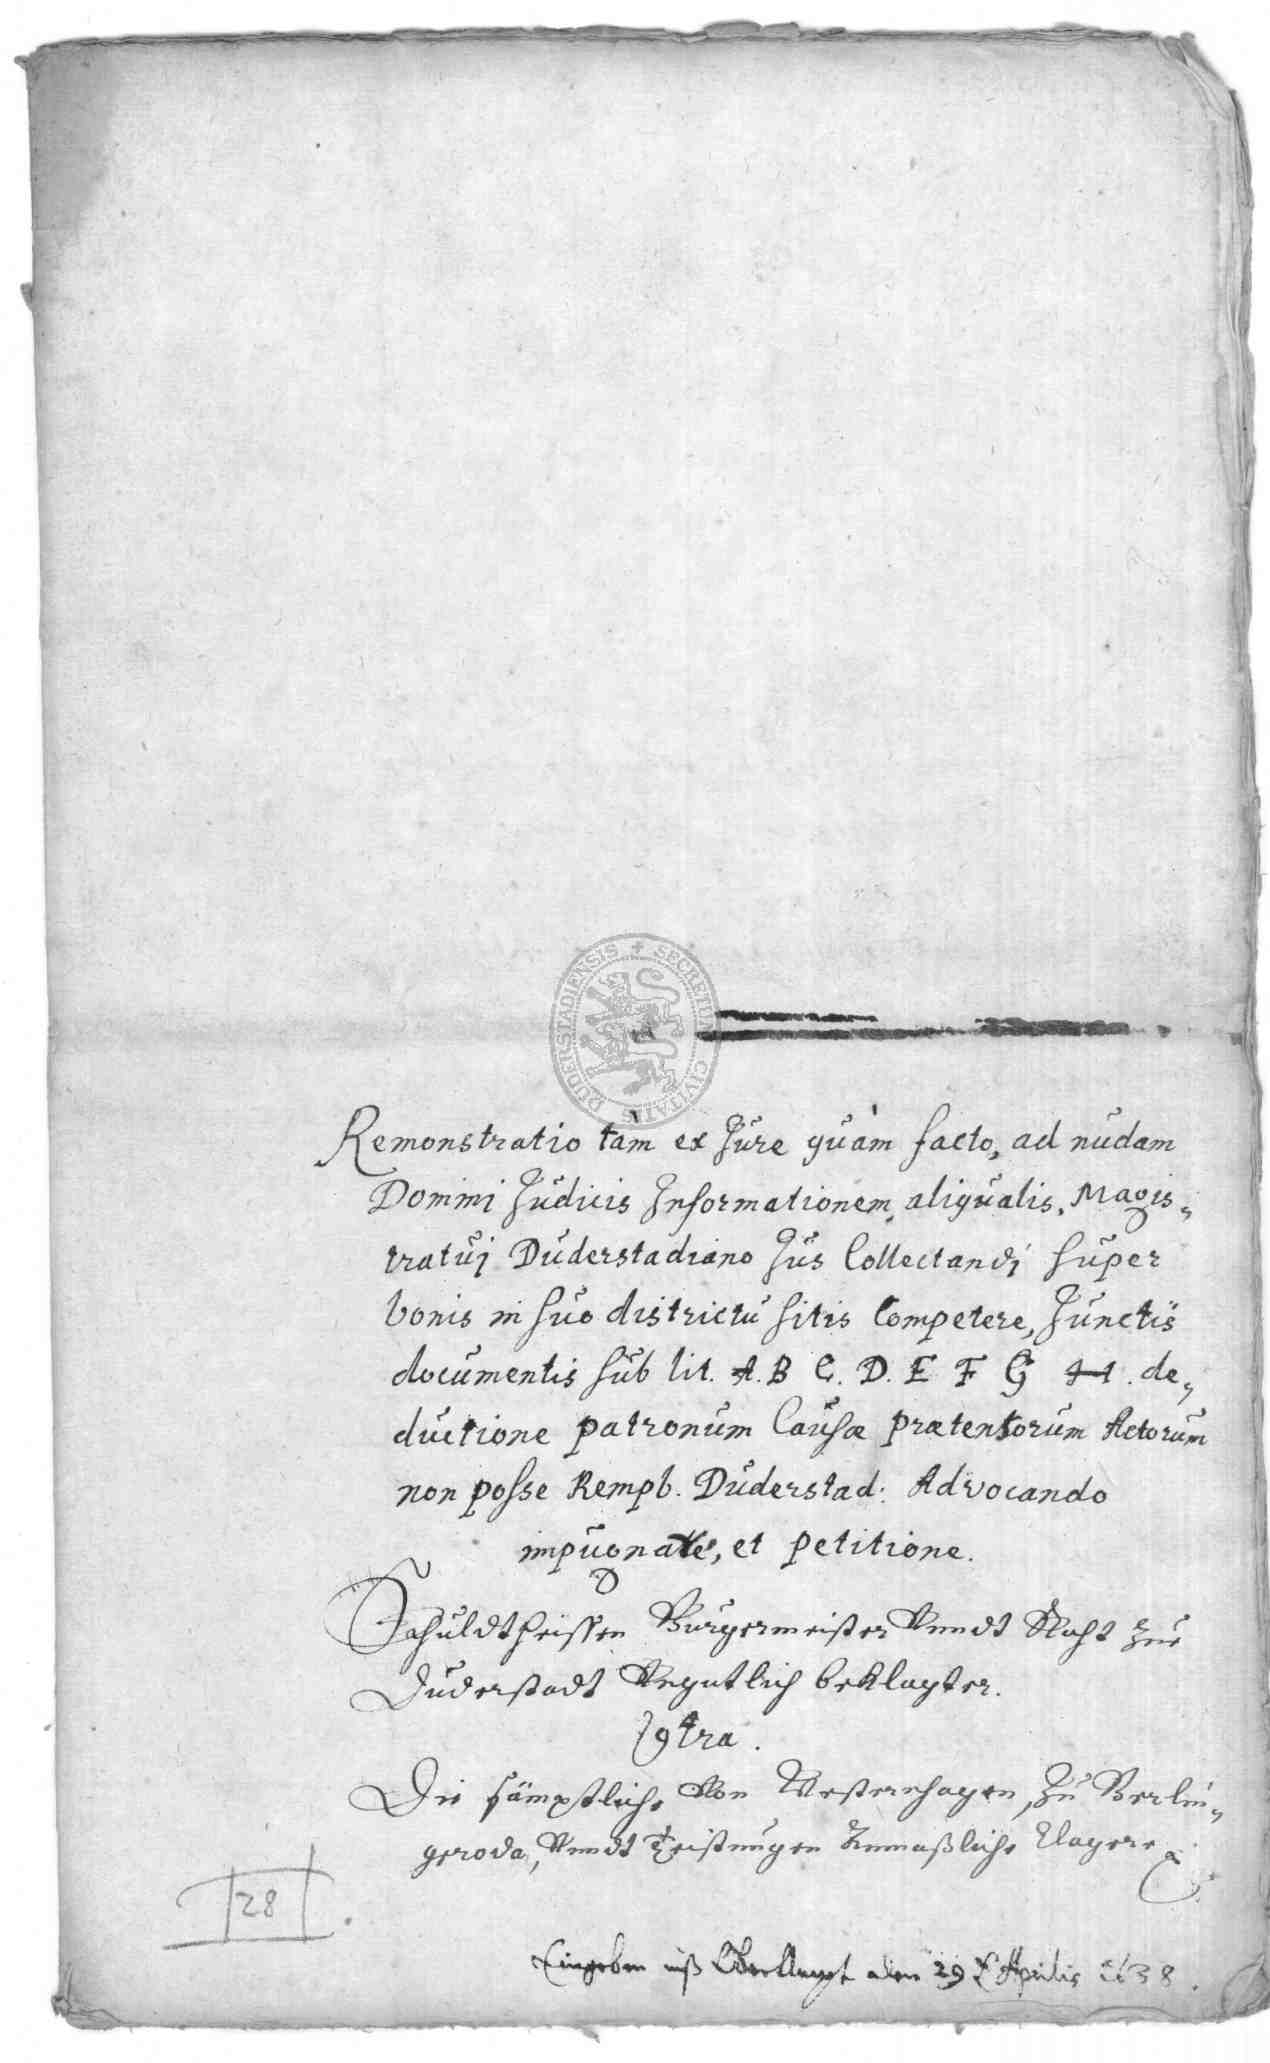 SECRETUM CIVITATIS DUDERSTADIENSIS
Remonstratio tàm ex Jure quàm facto, ad nudam
Domini Judicis Informationem, aliqualis, Magis-
tratuj Duderstadiano Jus Collectandj super
bonis in suo districtu sitis Competere, Junctis
documentis sub lit. A. B C. D. E F G H. de-
ductione patronum Causæ prætensorum Actorum
non posse Rempb. Duderstad: Advocando
impugnare, et petitione.
Schuldtheissen Burgermeister Vnndt Raht zue
Duderstadt Beklagter.
Contra.
Die sämptliche Von Westernhagen, zu Berlin-
geroda, Vnndt Teistungen Anmaßliche Clagere
28
Eingeben inß Oberampt den 29 Aprilis 1638.